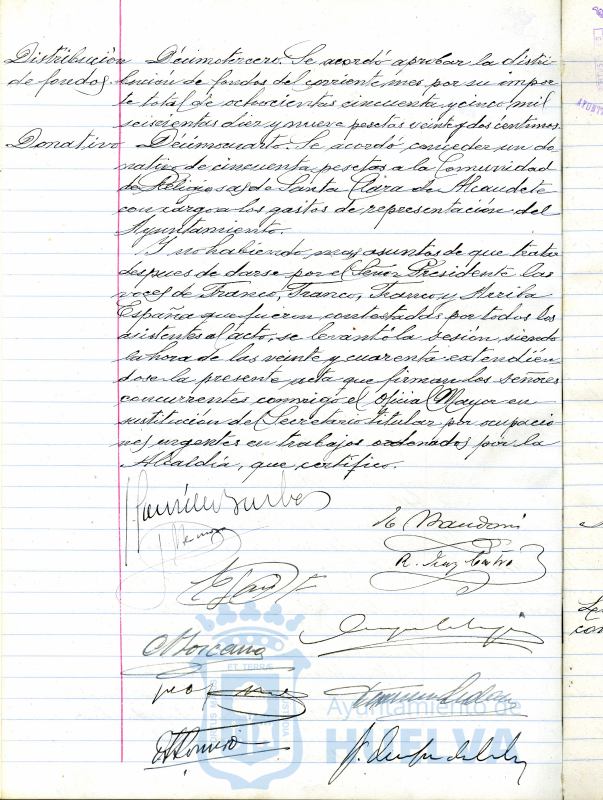 Distribución Décimotercero. Se acordó aprobar la distri-
de fondos. bución de fondos del corriente mes por su impor-
te total de ochocientas cincuenta y cinco mil
seiscientas diez y nueve pesetas veinte y dos centimos.
Donativo Décimocuarto. Se acordó conceder un do-
nativo de cincuenta pesetas a la Comunidad
de Religiosas de Santa Clara de Alcaudete
con cargo a los gastos de representación del
Ayuntamiento.
Y no habiendo mas asuntos de que tratar
despues de darse por el Señor Presidente las
voces de Franco, Franco, Franco y Arriba
España que fueron contestadas por todos los
asistentes al acto, se levantó la sesión, siendo
la hora de las veinte y cuarenta extendién-
dose la presente acta que firman los señores
concurrentes conmigo el Oficial Mayor en
sustitución del Secretario titular por ocupacio-
nes urgentes en trabajos ordenados por la
Alcaldía, que certifico.
ET TERRÆ
Ayuntamiento de
HUELVA